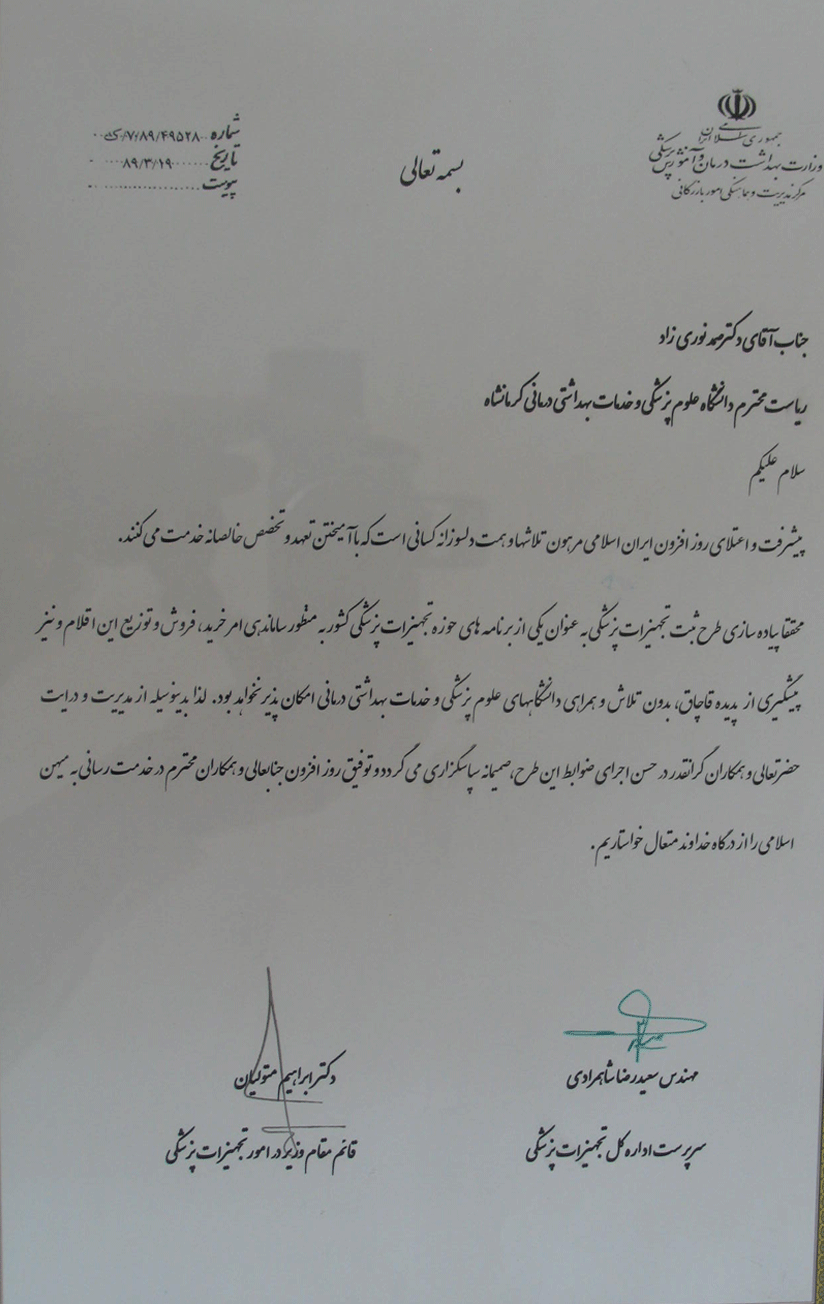 جمهوری اسلامی ایران
وزارت بهداشت درمان و آموزش پزشکی
مرکز مدیریت و هماهنگی امور بازرگانی
بسمه تعالی
شماره ۷/۸۹/۴۹۵۲۸/ک
تاریخ ۸۹/۳/۱۹
پیوست
جناب آقای دکتر صمد نوری زاد
ریاست محترم دانشگاه علوم پزشکی و خدمات بهداشتی درمانی کرمانشاه
سلام علیکم
پیشرفت و اعتلای روز افزون ایران اسلامی مرهون تلاشها و همت دلسوزانه کسانی است که با آمیختن تعهد و تخصص خالصانه خدمت می کنند.
محققا پیاده سازی طرح ثبت تجهیزات پزشکی به عنوان یکی از برنامه های حوزه تجهیزات پزشکی کشور به منظور ساماندهی امر خرید، فروش و توزیع این اقلام و نیز
پیشگیری از پدیده قاچاق، بدون تلاش و همراهی دانشگاههای علوم پزشکی و خدمات بهداشتی درمانی امکان پذیر نخواهد بود. لذا بدینوسیله از مدیریت و درایت
حضرتعالی و همکاران گرانقدر در حسن اجرای ضوابط این طرح، صمیمانه سپاسگزاری می گردد و توفیق روز افزون جنابعالی و همکاران محترم در خدمت رسانی به میهن
اسلامی را از درگاه خداوند متعال خواستاریم.
مهندس سعیدرضا شاهمرادی
سرپرست اداره کل تجهیزات پزشکی
دکتر ابراهیم متولیان
قائم مقام وزیر در امور تجهیزات پزشکی